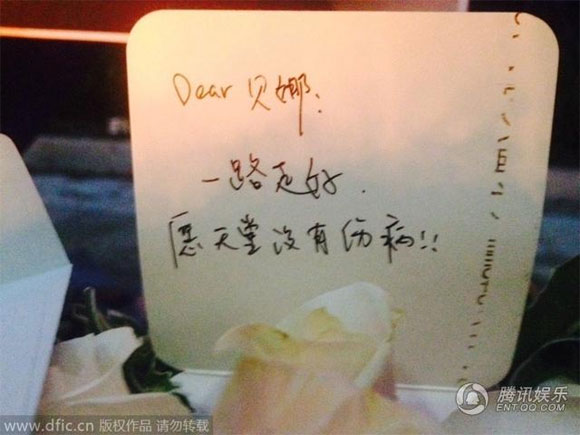 Dear 贝娜:
一路走好.
愿天堂没有伤病!!
腾讯娱乐
ENT·QQ.COM
www.dfic.cn 版权作品 请勿转载